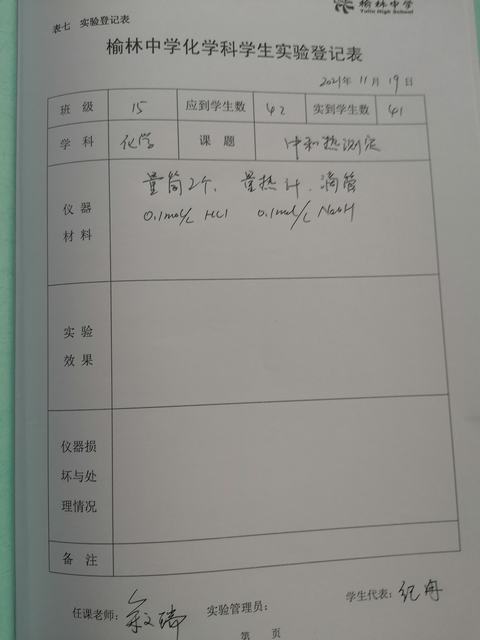 榆林中学
Yulin High School
表七 实验登记表
榆林中学化学科学生实验登记表
2021年 11 月 19 日
班 级 15 应到学生数 42 实到学生数 41
学 科 化学 课 题 中和热测定
仪 器 材 料 量筒2个. 量热计. 滴管
0.1mol/L HCl 0.1mol/L NaOH
实 验
效 果
仪器损
坏与处
理情况
备 注
任课老师: 实验管理员: 学生代表: 纪冉
第 页